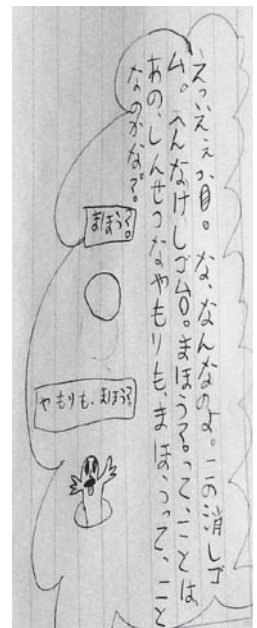 えっいえぇか目。な、なんなのよ。この消しゴ
ム。へんなけーしゴム〇。まほう?。って、ことは
あの、しんせつなやもりも、まほ、うって、こと
なのかな?。
まほう?。
やもりも、まほう?